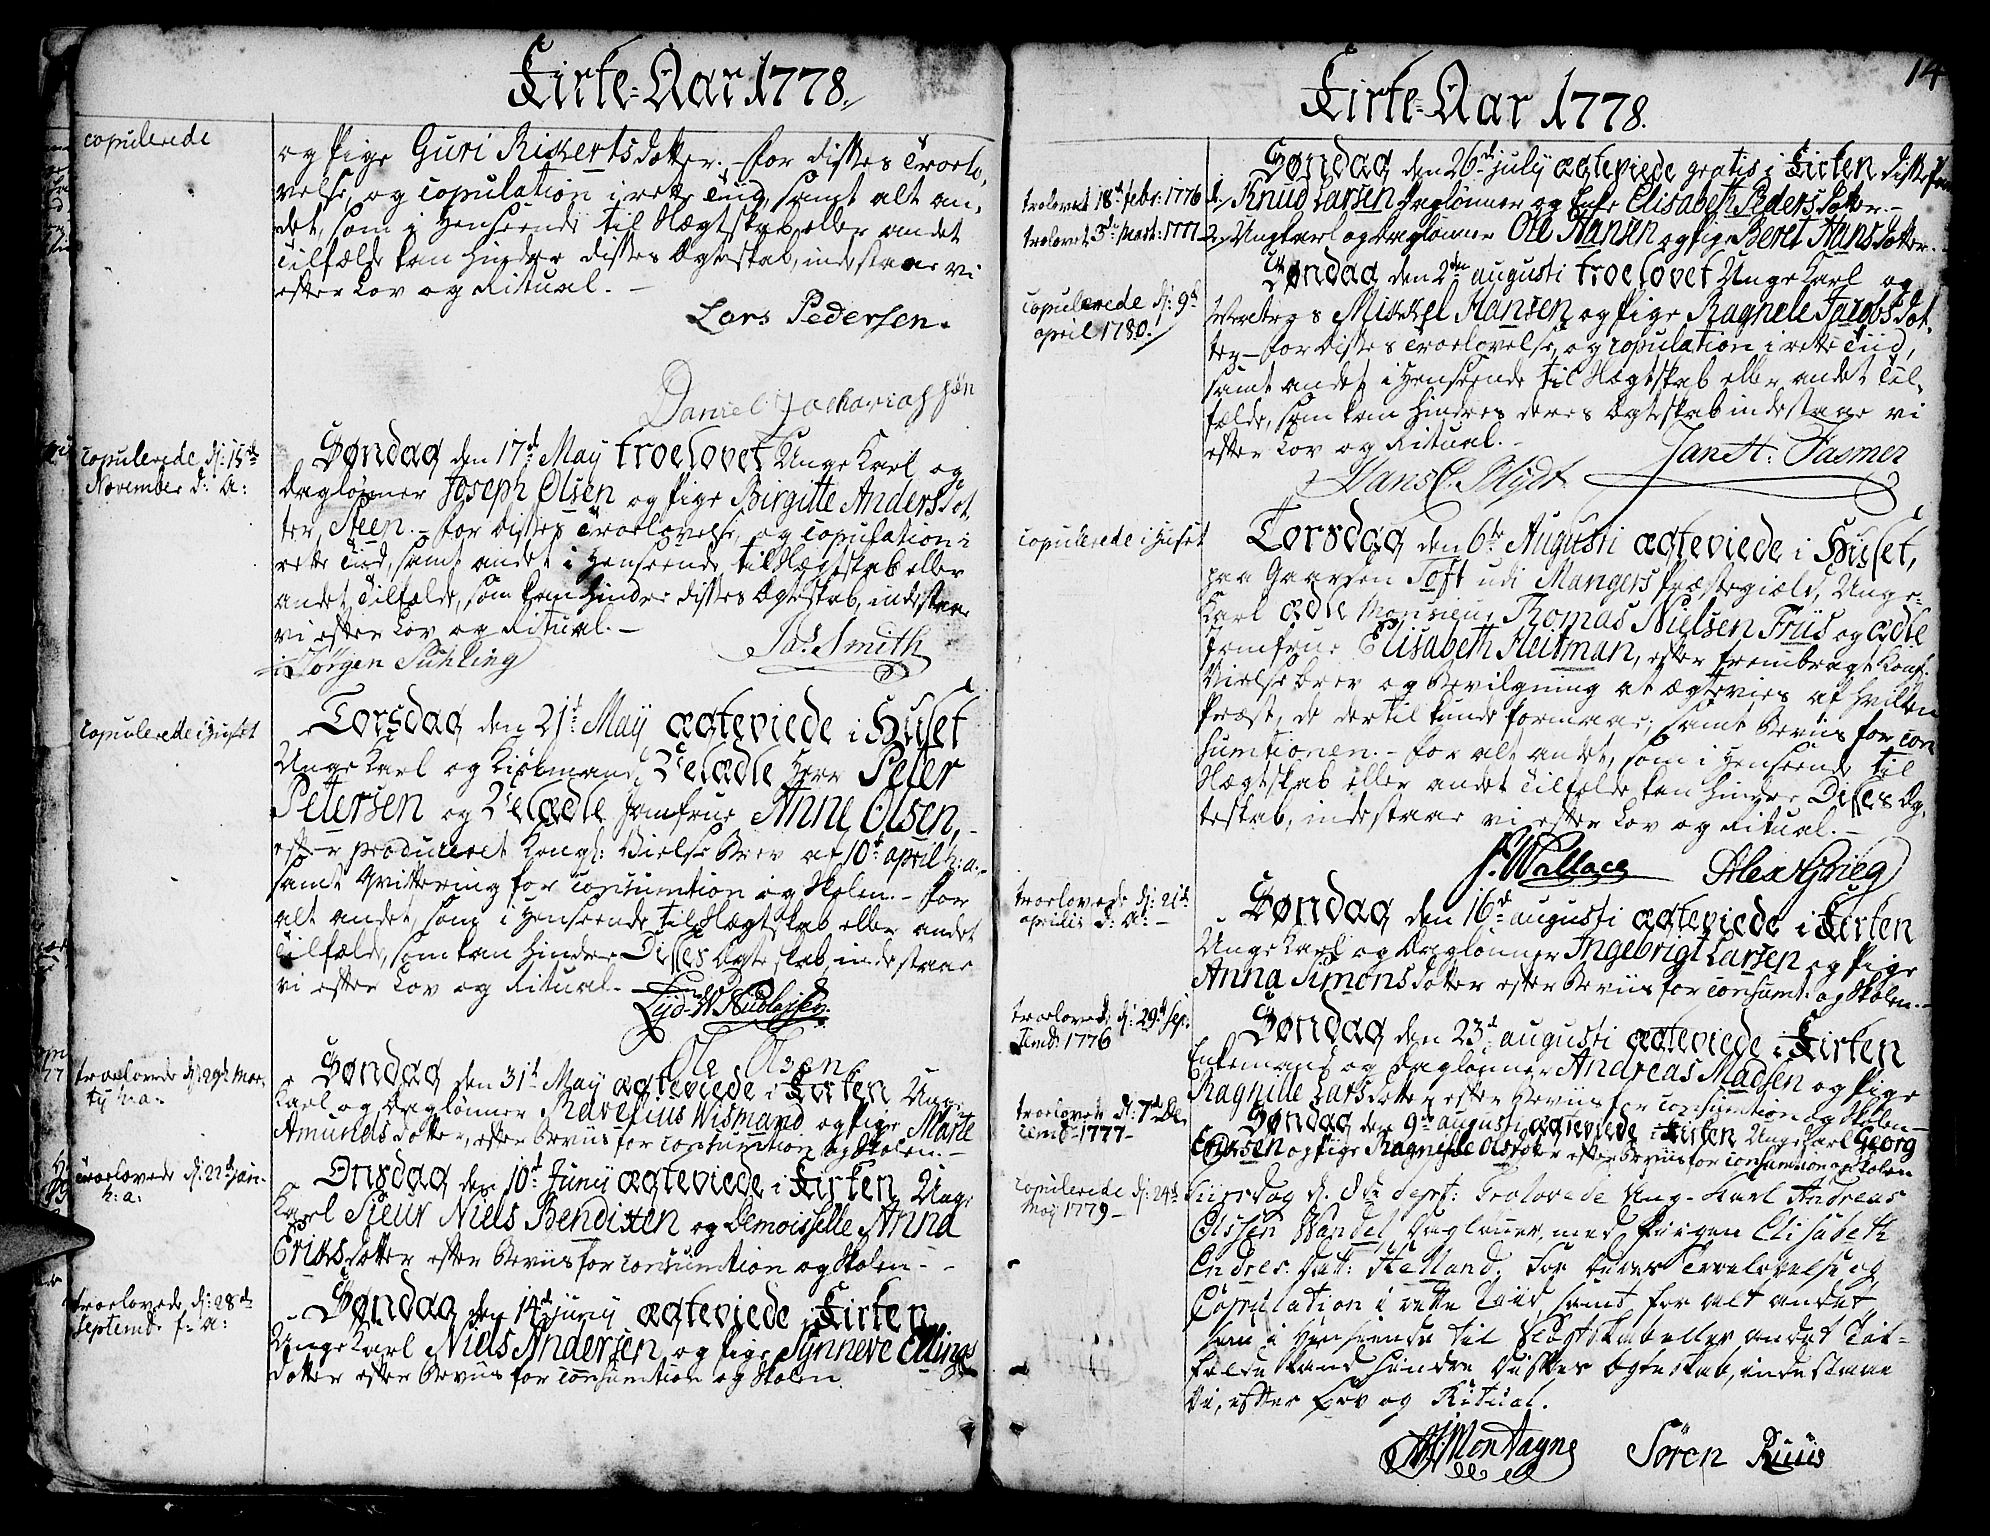 Kirke-Aar 1778.
copulerede
og Pige Guri Rickerts dotter. - for disses Troelo-
velse og copulation i rette Tiid, samt alt an-
det, som i Henseende til Slægtskab eller andet
Tilfælde kan hindre disses Ægteskab, indestaae vi
efter Lov og Ritual. -
Lars Pedersen.
Daniel Zachariassøn
copulerede d: 15de
November d: A:
Søndag den 17d May troelovet Unge Karl og
Daglønner Joseph Olsen og Pige Birgitte Anders dot-
ter Steen. - for disses Troelovelse og copulation i
rette Tiid, samt andet i Henseende til Slægtskab eller
andet Tilfælde, som kan hindre disses Ægteskab, indestaae
vi efter Lov og Ritual. -
Jørgen Suhling
Ja: Smith
copulerede i Huset
Torsdag den 21d May ægteviede i Huset
Unge Karl og Kiøbmand, Velædle Herr Peter
Petersen og Velædle Jomfrue Anne Olsen,
efter produceret Kongl: Vielse Brev af 10d april h: a: -
samt Qvittering for consumtion og Skolen. - for
alt andet, som i Henseende til Slægtskab eller andet
Tilfælde, som kan hindre Disses Ægteskab, indestaae
vi efter Lov og Ritual. -
Ole Olsen
troelovede d: 29d Mar-
tij h: a: -
Søndag den 31d May ægteviede i Kirken Unge
Karl og Daglønner Ravelius Wismand og Pige Marte
Amunds dotter, efter Beviis for consumtion og Skolen. -
troelovede d: 22d Jan-
h: a:
Onsdag den 10d Junij ægteviede i Kirken Unge
Karl Sieur Niels Bendixen og Demoisselle Anna
Eriks dotter efter Beviis for consumtion og Skolen - -
troelovede d: 28d
septembr f: a:
Søndag den 14d junij ægteviede i Kirken
Unge Karl Niels Andersen og Pige Synneve Ellings
dotter efter Beviis for consumtion og Skolen.
14
Kirke-Aar 1778.
Søndag den 26d julij ægteviede gratis i Kirken disse
trolovet 18d febr: 1776
1. Knud Larsen Dagløner og Enke Elisabeth Peders dotter. -
trolovet 3d Mart: 1777
2. Ungkarl og Dagløner Ole Hansen og Pige Beret Hans dotter.
copulerede d: 9d
april 1780.
Søndag den 2den augusti troelovet Unge Karl og
Mickel Hansen og Pige Ragnele Jacobs dot-
ter - for disses Troelovelse og copulation i rette Tiid,
samt andet i Henseende til Slægtskab eller andet Til-
fælde, som kan hindre deres Ægteskab indestaae vi
efter Lov og Ritual. -
Jan H: Fasmer
copulerede i Huset
Torsdag den 6te Augusti ægteviede i Huset,
paa Gaarden Toft udi Mangers Præstegield, Unge
Karl ædle Monsieur Thomas Nielsen Friis og ædle
Jomfrue Elisabeth Heitman, efter frembragt Kongl:
Vielse brev og Bevilgning at ægtevies af hvilken
Præst, de dertil kunde formaae; samt Beviis for con
sumtionen. - for alt andet, som i Henseende til
Slægtskab eller andet Tilfælde kan hindre Disses Æg-
teskab, indestaae vi efter Lov og Ritual. -
J: Wallace
Alex Grieg
troelovede d: 21d
aprilis d: a: -
Søndag den 16d augusti ægteviede i Kirken
Unge Karl og Dagløner Ingebrigt Larsen og Pige
Anna Simons dotter efter Beviis for consumt: og Skolen. -
troelovede d: 29d Sep-
temb: 1776
Søndag den 23d augusti ægteviede i Kirken
Enkemand og Dagløner Andreas Madsen og Pige
Ragnille Lars dotter efter Beviis for consumtion og Skolen -
troelovede d: 7d De-
cemb: 1777 -
Søndag den 9d augusti ægteviede i Kirken Unge Karl Georg
Endresen og Pige Ragnille Ols dotter efter Beviis for consumtion og Skolen
copulerede d: 24d
Maj 1779 -
Tiirsdag d. 8de Sept: Trolovede Ung-Karl Andreas
Olssen Wandel, Dagløner, med Piigen Elisabeth
Endres: Dat: Helland. For deres Troelovelse og
Copulation i rette Tiid samt for alt andet,
som i Henseende til Slægtskab eller andet Til-
fælde kand hindre disses Ægteskab, indestaae
Vi, efter Lov og Ritual.
Montagne
Søren Ruus